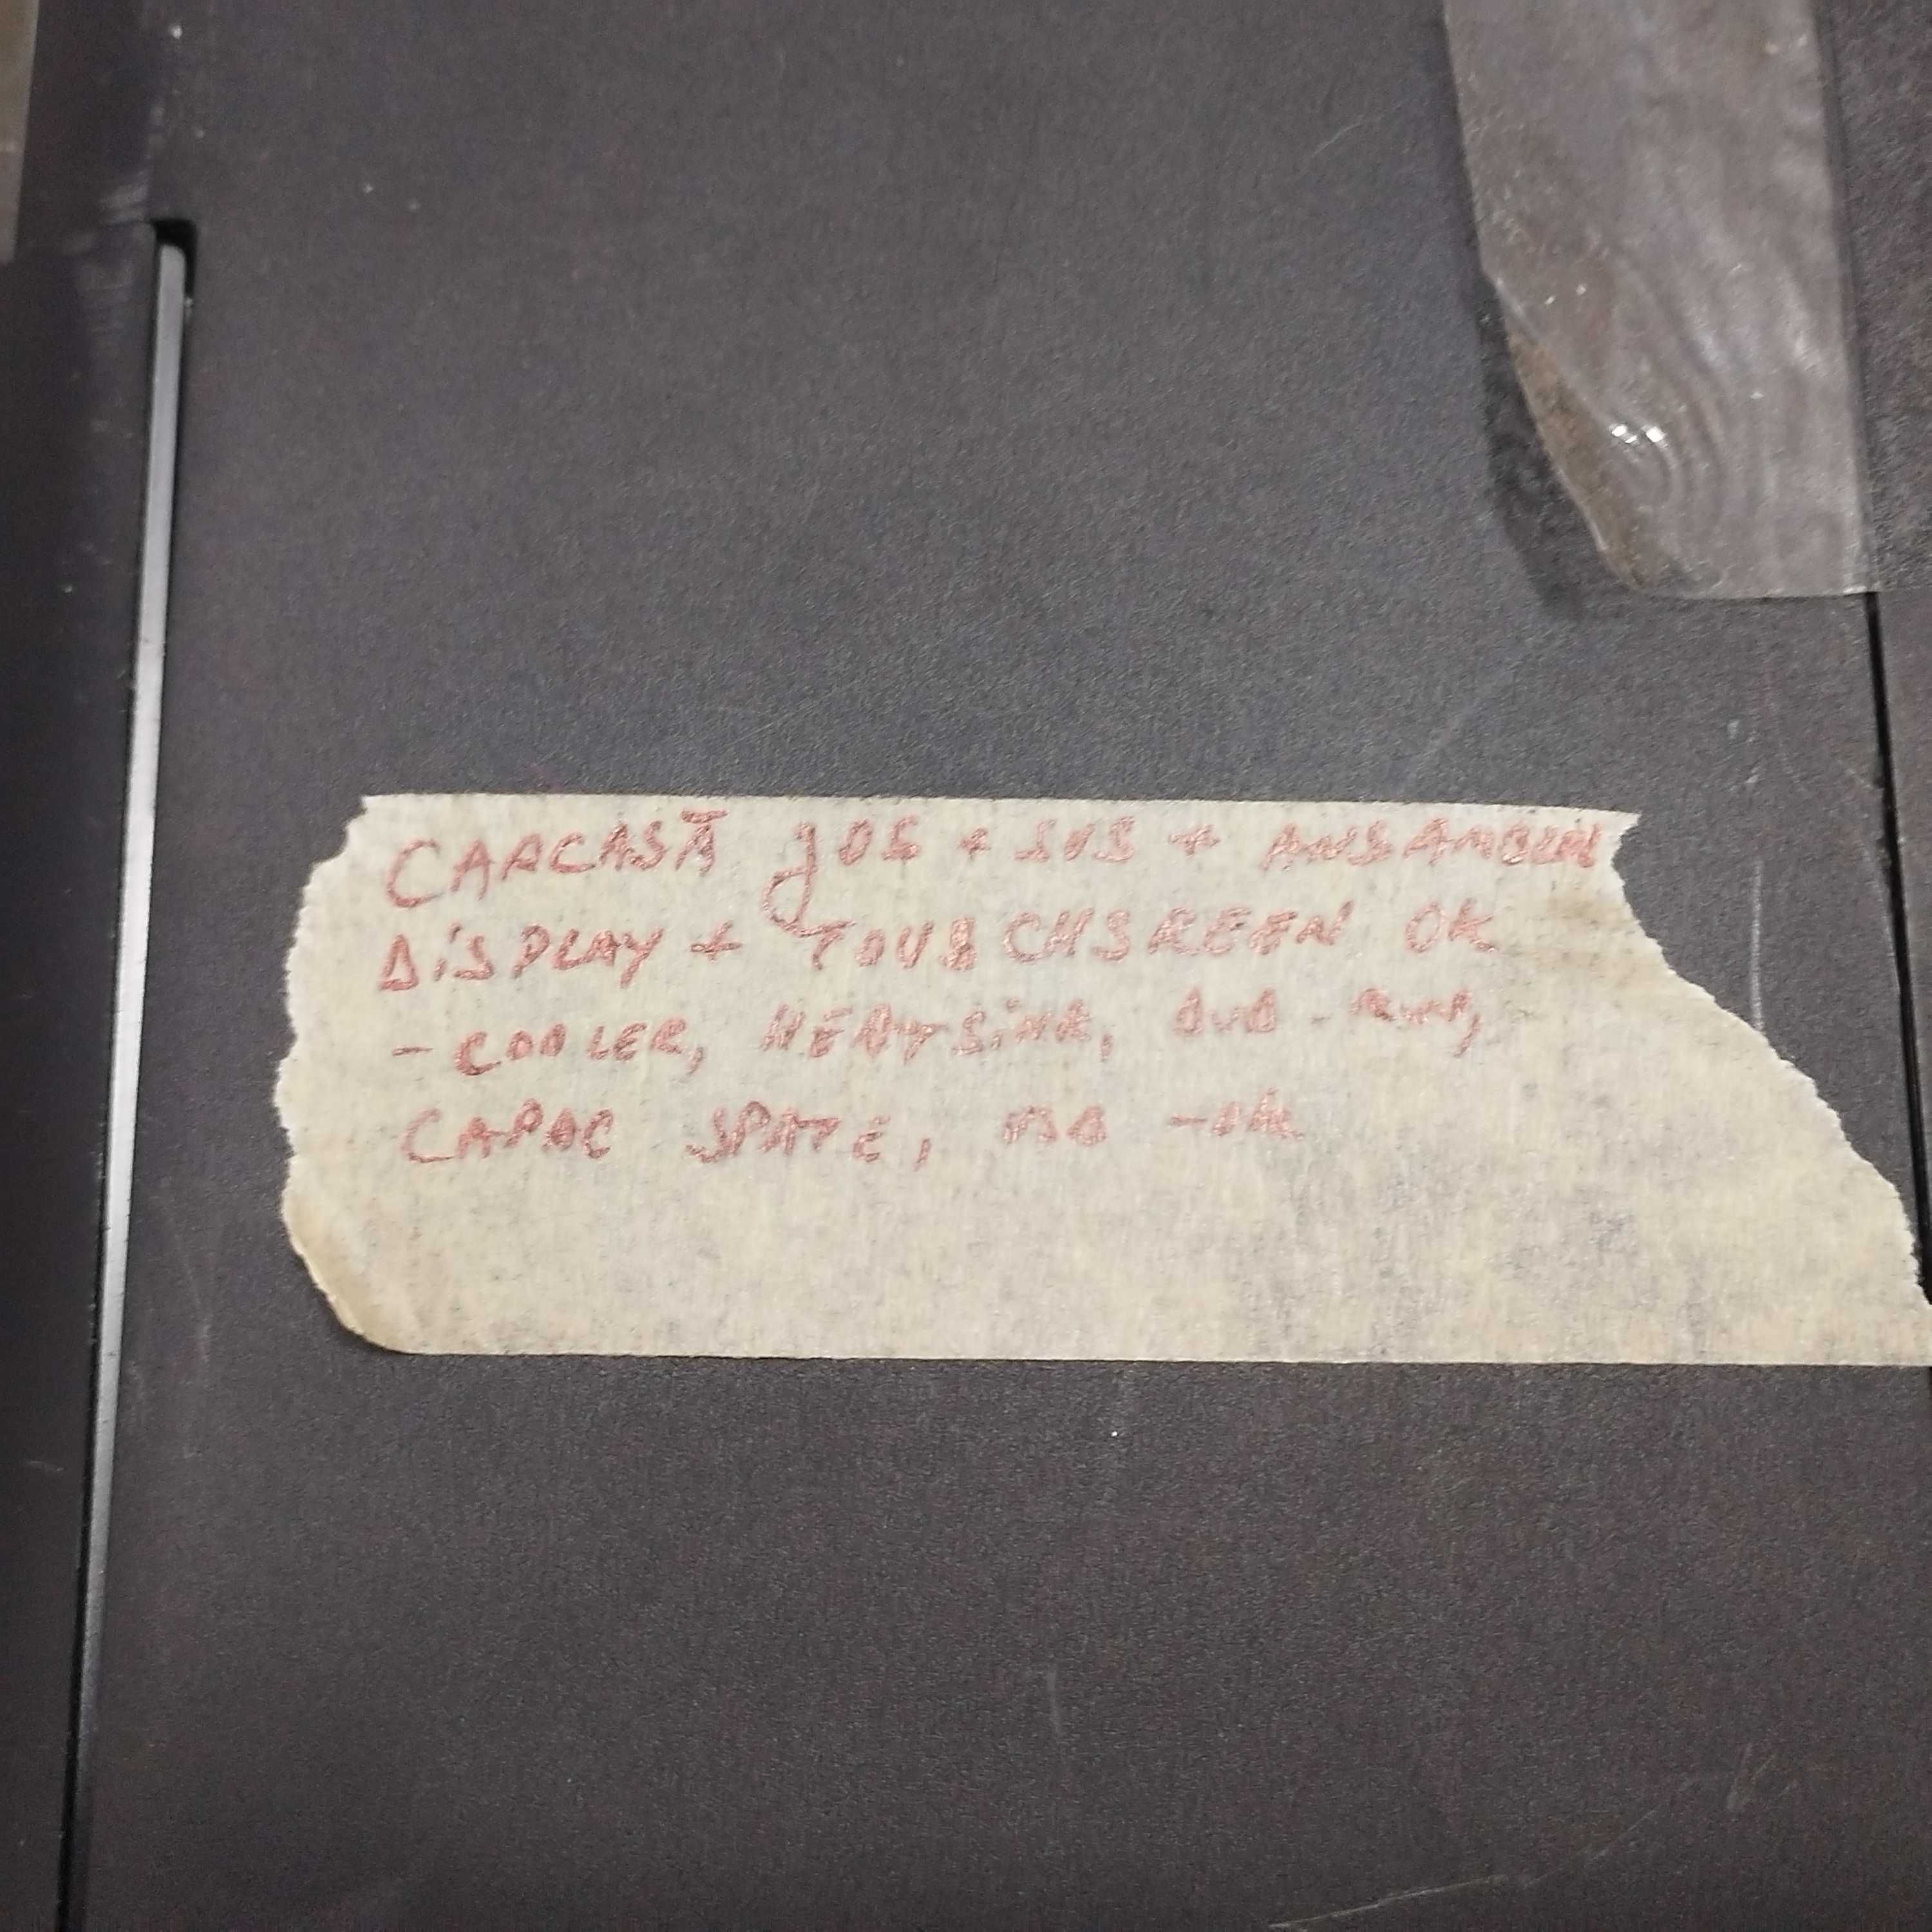 CARCASĂ JOS + SUS + ANSAMBLU
DiSPLAY + TOUSCHSREEN OK
- COOLER, HEATSiNK, DVD - RW,
CAPAC SPATE, - OK